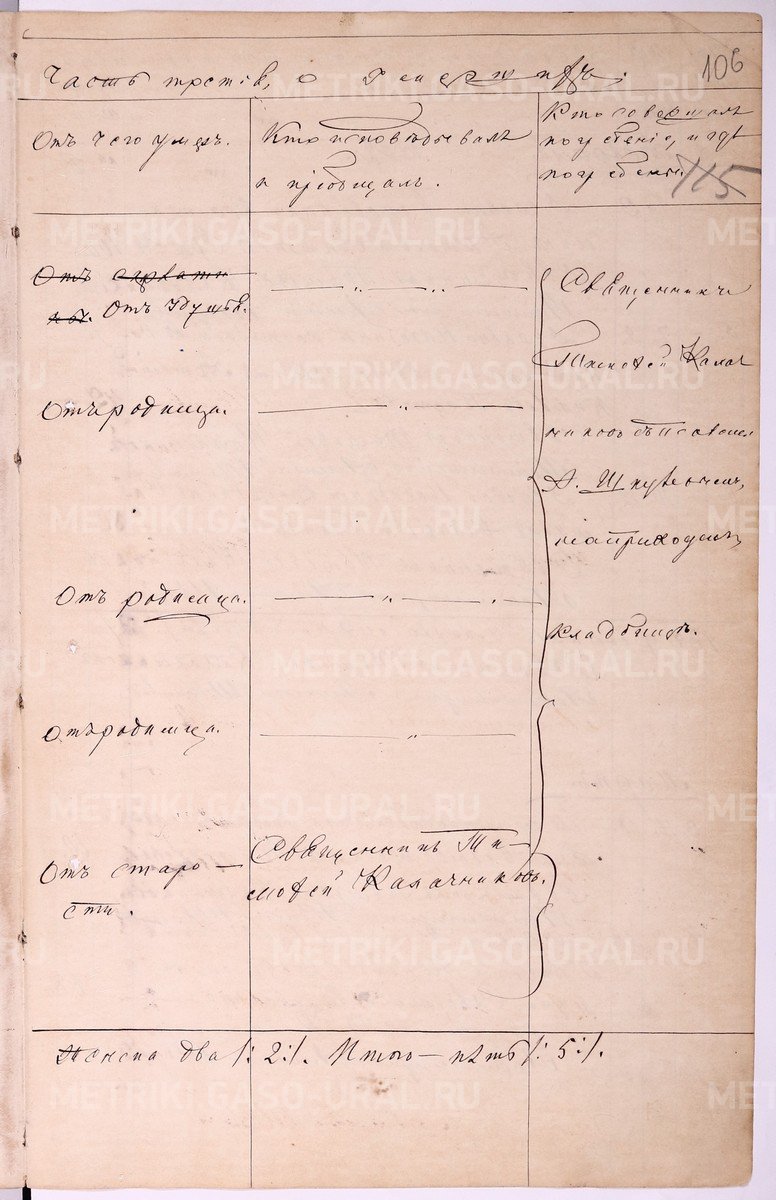 106
Часть третія, о умершихъ.
Отъ чего умеръ.
Кто исповѣдывалъ
и пріобщалъ.
Кто совершалъ
погребеніе, и гдѣ
погребены.
115
Отъ
Отъ удушья.
Отъ родимца.
Отъ родимца.
Отъ родимца.
Отъ старо-
сти.
Священникъ Ти-
моѳей Калачниковъ.
Священникъ
Тимоѳей Калач
никовъ съ псаломщ
А.
на приходскомъ
кладбищѣ.
Женска два /: 2 :/. Итого — пять /: 5 :/.
METRIKI.GASO-URAL.RU